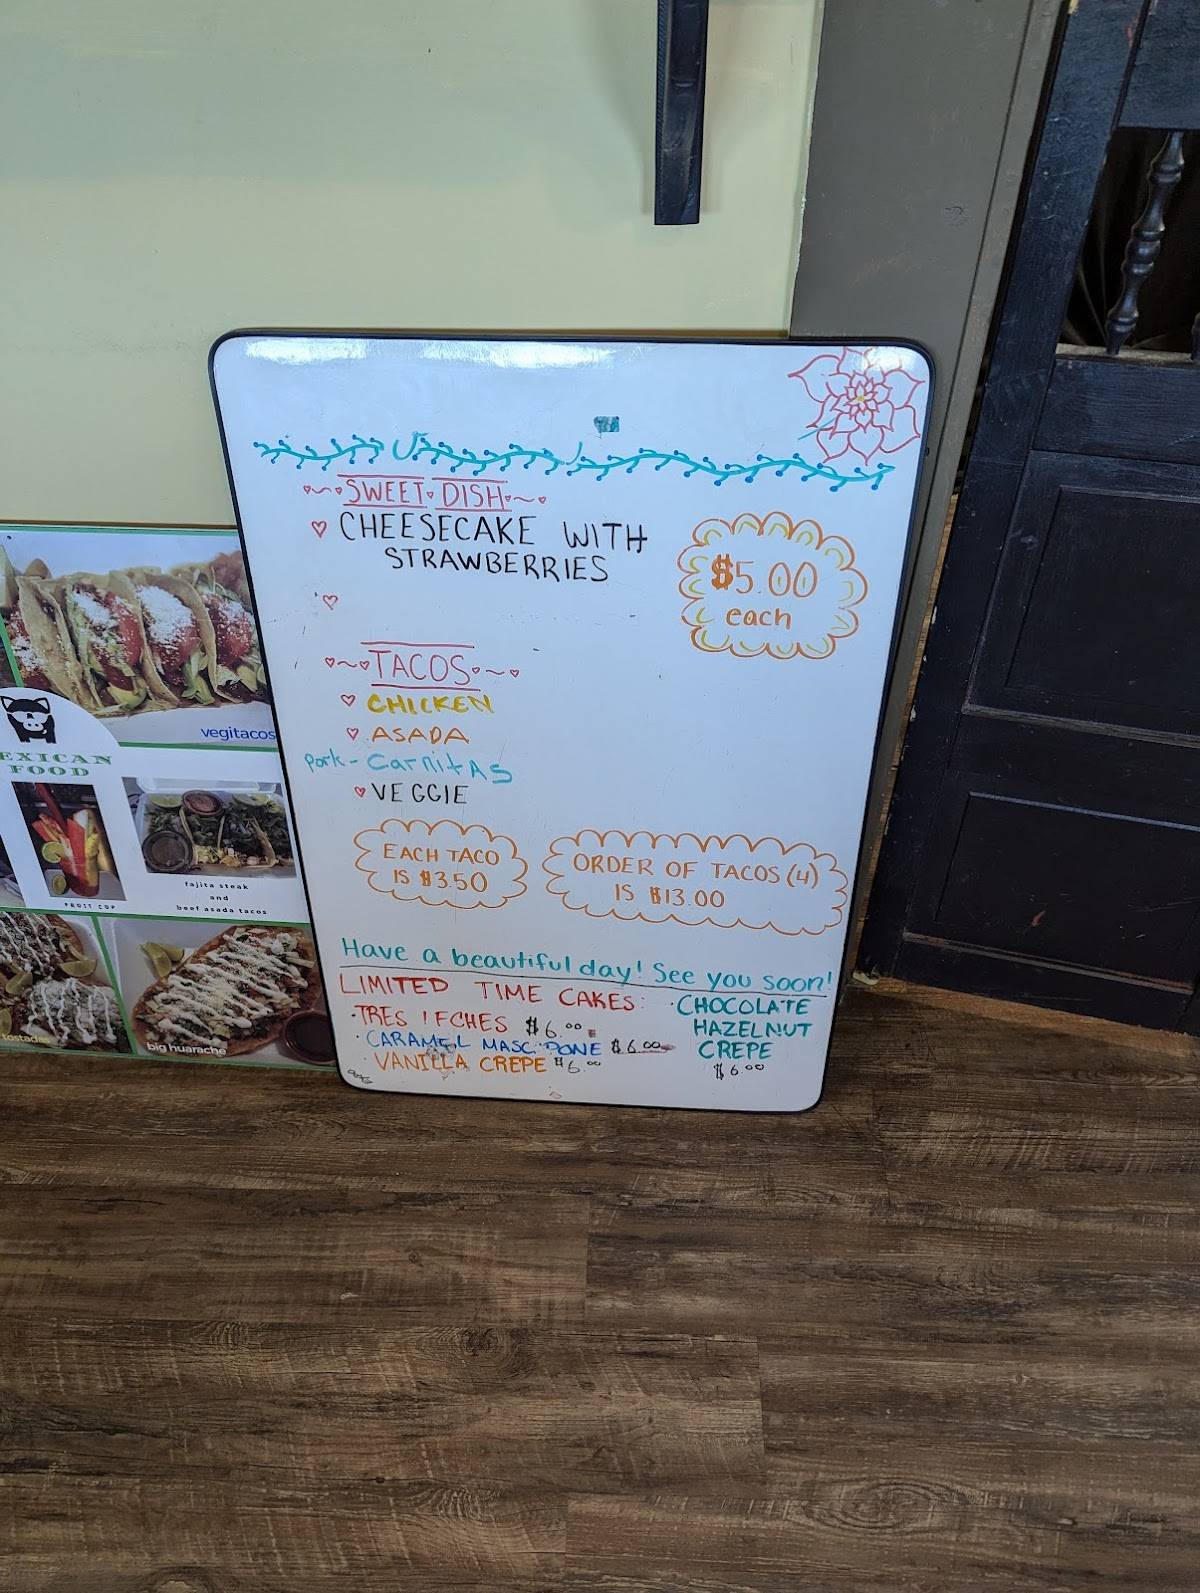 SWEET DISH
CHEESECAKE WITH
STRAWBERRIES
$5.00
each
TACOS
CHICKEN
ASADA
Pork - CarnitAS
VEGGIE
EACH TACO
IS $3.50
ORDER OF TACOS (4)
IS $13.00
Have a beautiful day! See you soon!
LIMITED TIME CAKES:
·TRES LECHES $6.00
·CARAMEL MASC PONE $6.00
·VANILLA CREPE $6.00
·CHOCOLATE
HAZELNUT
CREPE
$6.00
vegitacos
EXICAN
FOOD
FRUIT CUP
fajita steak
and
beef asada tacos
tostadas
big huarache